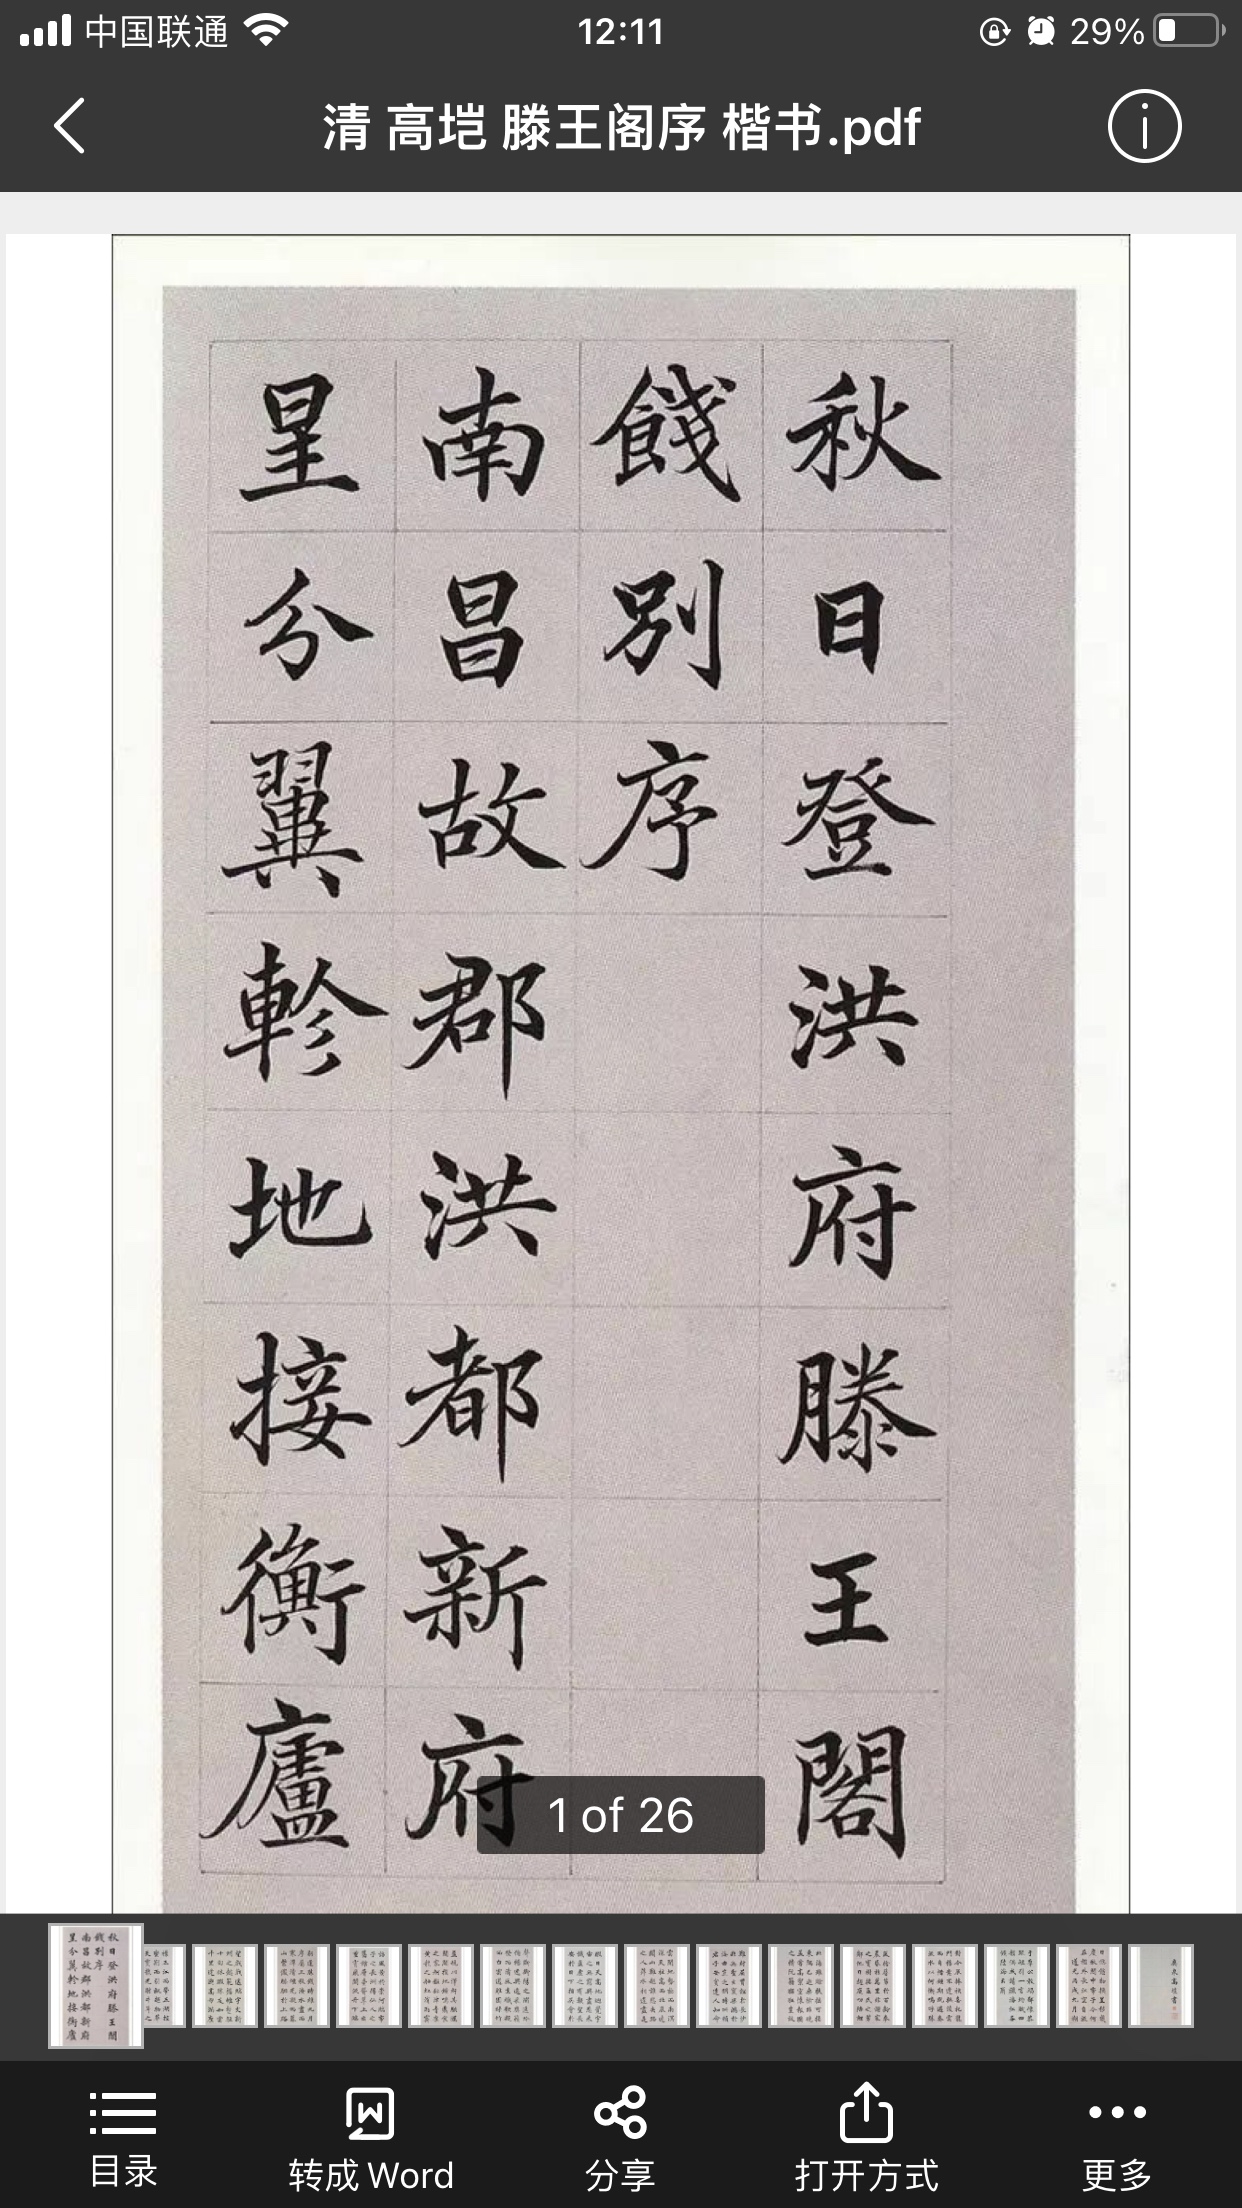 中国联通 12:11 29%
清 高垲 滕王阁序 楷书.pdf
秋日登洪府滕王閣
餞別序
南昌故郡洪都新府
星分翼軫地接衡廬
1 of 26
目录 转成Word 分享 打开方式 更多